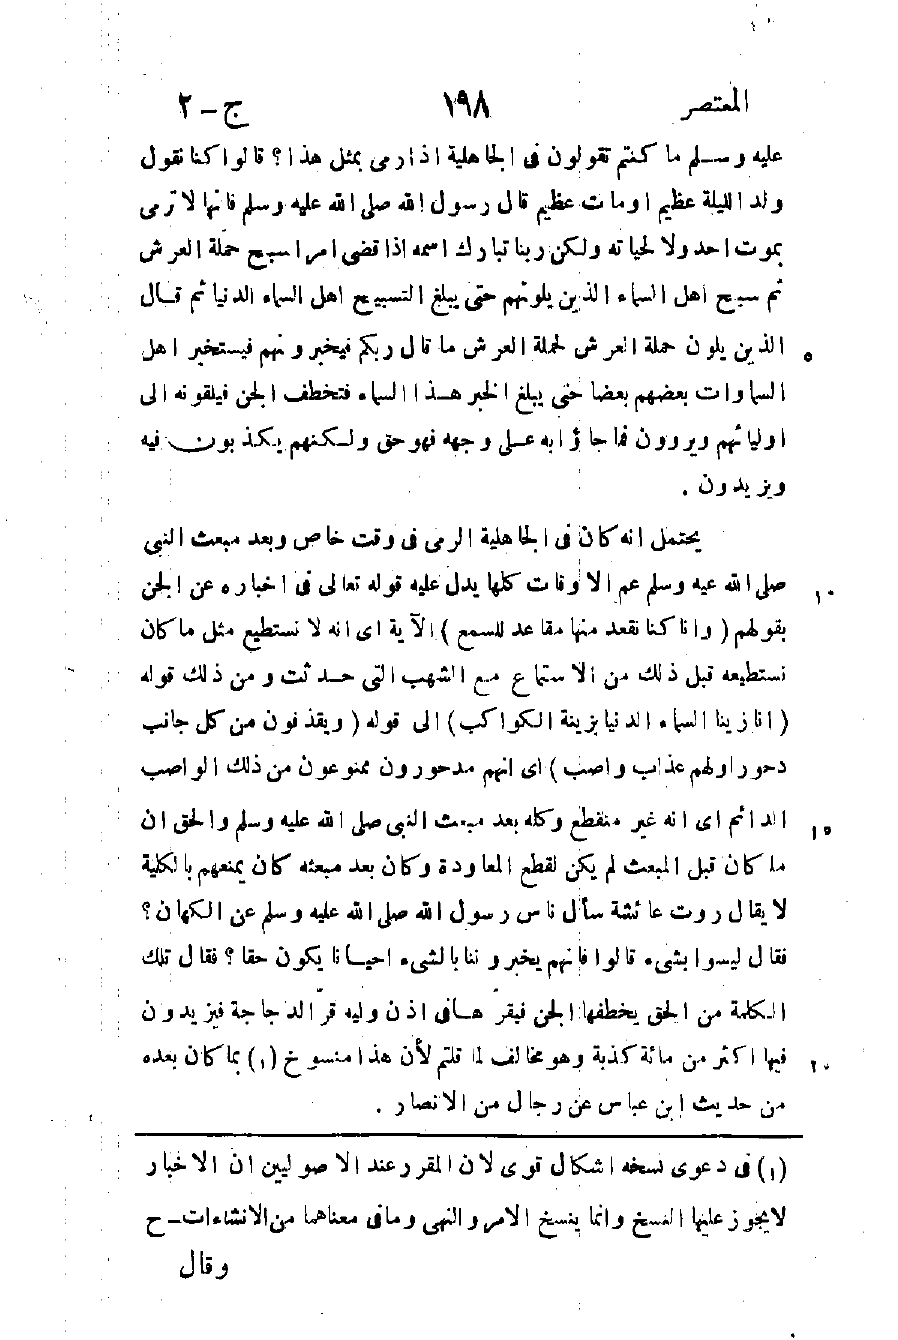 المعتصر ١٩٨ ج - ٢
عليه وسلم ما كنتم تقولون فى الجاهلية اذا رمى بمثل هذا؟ قالوا كنا نقول
ولد الليلة عظيم او مات عظيم قال رسول الله صلى الله عليه وسلم فانها لا ترمى
بموت احد ولا لحياته ولكن ربنا تبارك اسمه اذا قضى امرا سبح حملة العرش
ثم سبح اهل السماء الذين يلونهم حتى يبلغ التسبيح اهل السماء الدنيا ثم قال
الذين يلون حملة العرش لحملة العرش ما قال ربكم فيخبرونهم فيستخبر اهل
٥
السماوات بعضهم بعضا حتى يبلغ الخبر هذا السماء فتخطف الجن فيلقونه الى
اوليائهم ويروون فما جاؤا به على وجهه فهو حق ولكنهم يكذبون فيه
ويزيدون .
يحتمل انه كان فى الجاهلية الرمى فى وقت خاص وبعد مبعث النبى
صلى الله عيه وسلم عم الاوقات كلها يدل عليه قوله تعالى فى اخباره عن الجن
١٠
بقولهم ( وانا كنا نقعد منها مقاعد للسمع ) الآية اى انه لا نستطيع مثل ما كان
نستطيعه قبل ذلك من الاستماع مع الشهب التى حدثت ومن ذلك قوله
( انا زينا السماء الدنيا بزينة الكواكب ) الى قوله ( ويقذفون من كل جانب
دحورا ولهم عذاب واصب ) اى انهم مدحورون ممنوعون من ذلك الواصب
الدائم اى انه غير منقطع وكله بعد مبعث النبى صلى الله عليه وسلم والحق ان
١٥
ما كان قبل المبعث لم يكن لقطع المعاودة وكان بعد مبعثه كان يمنعهم بالكلية
لا يقال روت عائشة سأل ناس رسول الله صلى الله عليه وسلم عن الكهان؟
فقال ليسوا بشىء قالوا فانهم يخبروننا بالشىء احيانا يكون حقا؟ فقال تلك
الكلمة من الحق يخطفها الجن فيقرّها فى اذن وليه قرّ الدجاجة فيزيدون
فيها اكثر من مائة كذبة وهو مخالف لما قلتم لأن هذا منسوخ (١) بما كان بعده
٢٠
من حديث ابن عباس عن رجال من الانصار .
(١) فى دعوى نسخه اشكال قوى لان المقرر عند الاصوليين ان الاخبار
لا يجوز عليها النسخ وانما ينسخ الامر والنهى وما فى معناهما من الانشاءات - ح
وقال